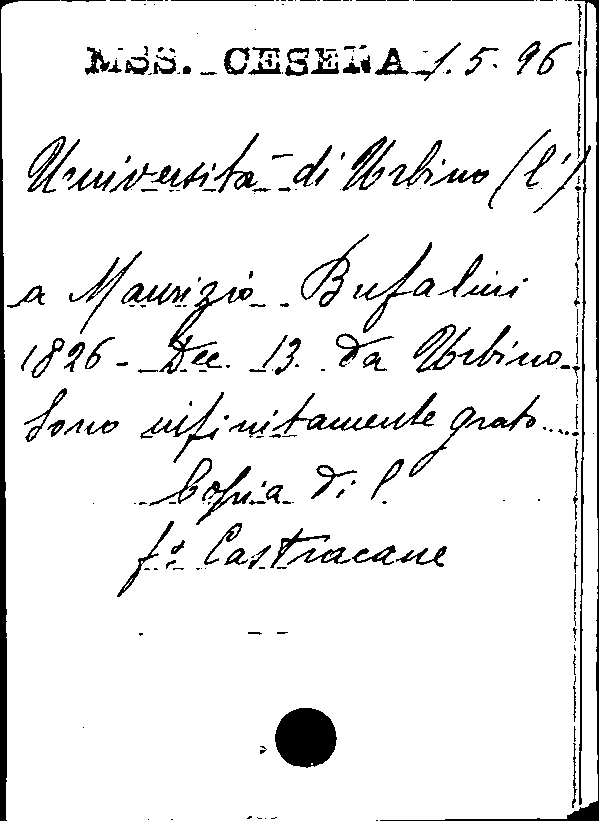 MSS. CESENA 1.5.96
Università di Urbino (l')
a Maurizio Bufalini
1826 - Dec. 13. da Urbino
Sono infinitamente grato ....
Copia di l.
fo: Castracane